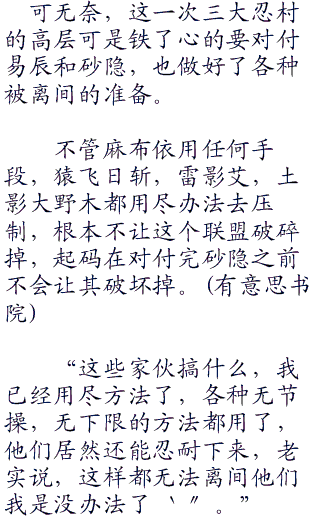 可无奈，这一次三大忍村
的高层可是铁了心的要对付
易辰和砂隐，也做好了各种
被离间的准备。
不管麻布依用任何手
段，猿飞日斩，雷影艾，土
影大野木都用尽办法去压
制，根本不让这个联盟破碎
掉，起码在对付完砂隐之前
不会让其破坏掉。(有意思书
院)
“这些家伙搞什么，我
已经用尽方法了，各种无节
操，无下限的方法都用了，
他们居然还能忍耐下来，老
实说，这样都无法离间他们
我是没办法了｀〃。”